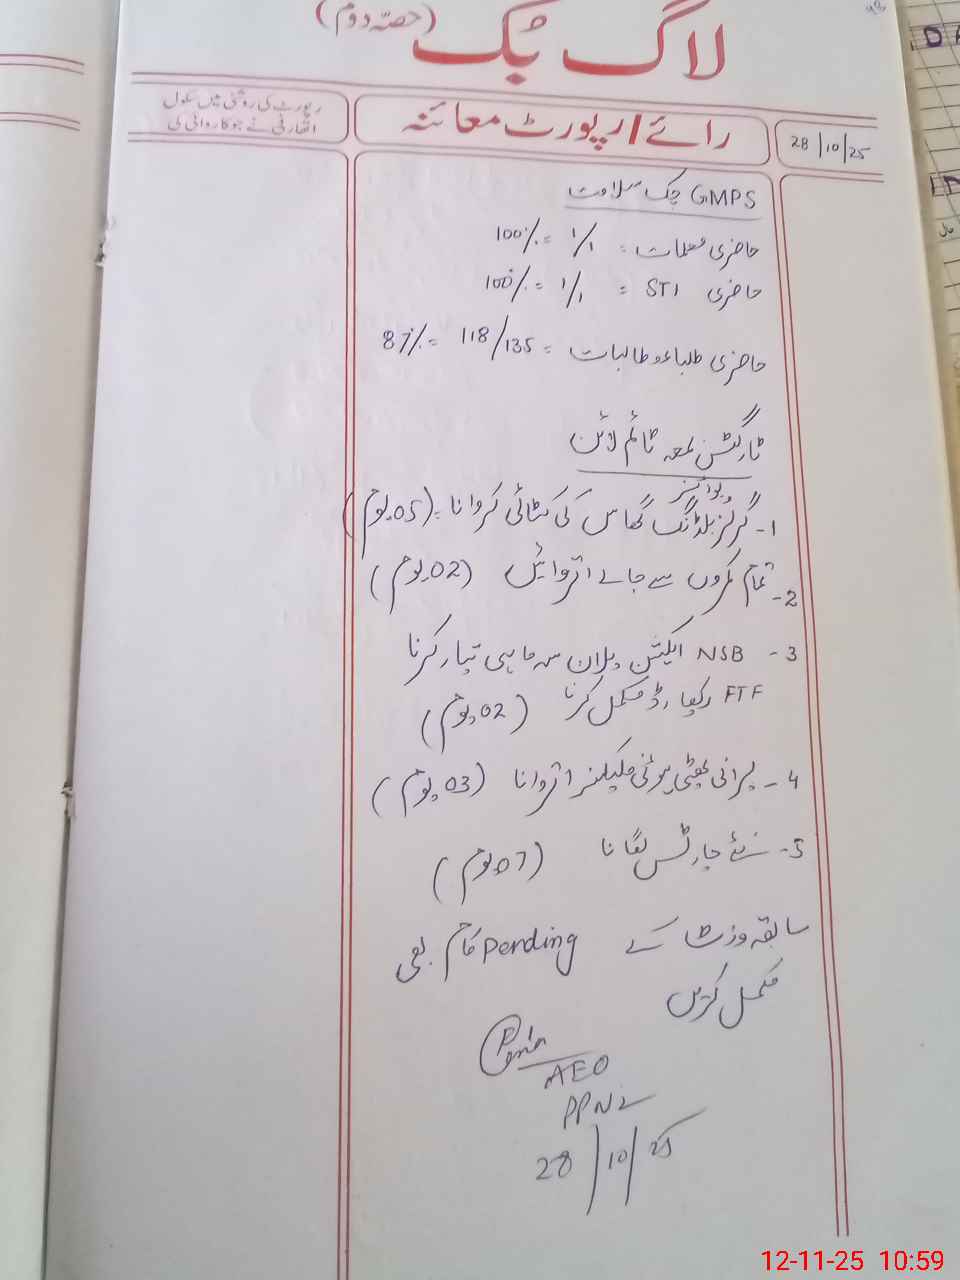 (حصّہ دوم)
لاگ بُک
رپورٹ کی روشنی میں سکول
اتھارٹی نے جو کاروائی کی
رائے/رپورٹ معائنہ
28/10/25
GMPS چک سلامت
حاضری معلمات = 1/1 = 100%
حاضری STI = 1/1 = 100%
حاضری طلباء و طالبات = 118/135 = 87%
ٹارگٹس بمعہ ٹائم لائن
1- گرلز بلڈنگ گھاس کی کٹائی کروانا (05 یوم)
2- تمام کمروں سے جالے اتروائیں (02 یوم)
3- NSB ایکشن پلان سہ ماہی تیار کرنا
FTF ریکارڈ مکمل کرنا (02 یوم)
4- پرانی پھٹی ہوئی فلیکسز اتروانا (03 یوم)
5- نئے چارٹس لگانا (07 یوم)
سابقہ وزٹ کے Pending کام بھی
مکمل کریں
AEO
PPN2
28/10/25
12-11-25 10:59